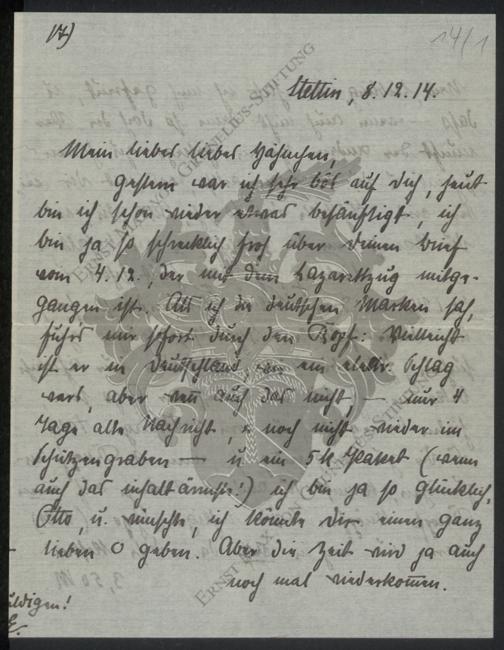 17)
14/1
Stettin, 8.12.14.
Mein liebes liebes Hähnchen,
gestern war ich sehr bös auf dich, heut
bin ich schon wieder etwas besänftigt, ich
bin ja so schrecklich froh über deinen Brief
vom 4.12., der mit dem Lazarettzug mitge-
gangen ist. Als ich die deutschen Marken sah,
fuhrs mir sofort durch den Kopf: Vielleicht
ist er in Deutschland, wie ein elektr. Schlag
wars, aber nun auch das nicht, – nur 4
Tage alte Nachricht, u noch nicht wieder im
Schützengraben — u. ein 5 K Paket (wenn
auch das inhaltärmste!) ich bin ja so glücklich,
Otto, u. wünschte, ich könnte dir einen ganz
lieben O geben. Aber die Zeit wird ja auch
noch mal wiederkommen.
uldigen!
ERNST-MAX VON GRUNELIUS-STIFTUNG
ERNST-MAX VON GRUNELIUS-STIFTUNG